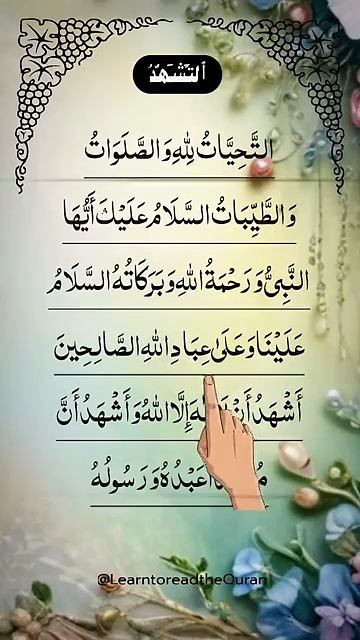 ٱلتَّشَهُّدُ
التَّحِيَّاتُ لِلّٰهِ وَ الصَّلَوَاتُ
وَ الطَّيِّبَاتُ السَّلَامُ عَلَيْكَ أَيُّهَا
النَّبِيُّ وَ رَحْمَةُ اللّٰهِ وَ بَرَكَاتُهُ السَّلَامُ
عَلَيْنَا وَ عَلَىٰ عِبَادِ اللّٰهِ الصَّالِحِينَ
أَشْهَدُ أَنْ إِلَّا اللّٰهُ وَ أَشْهَدُ أَنَّ
عَبْدُهُ وَ رَسُولُهُ
@LearntoreadtheQuran